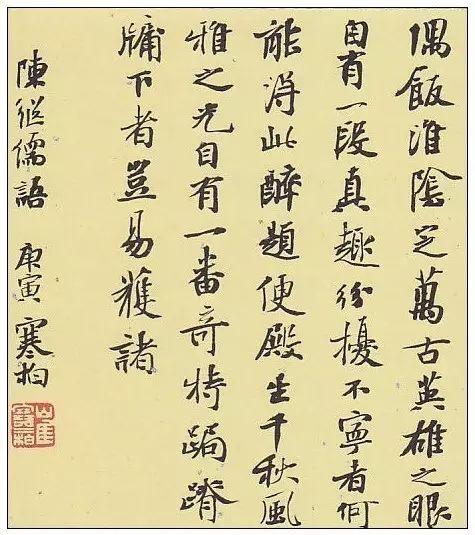 偶飯淮陰定萬古英雄之眼
自有一段真趣紛擾不寧者何
能得此醉題便殿生千秋風
雅之光自有一番奇特跼蹐
牖下者豈易獲諸
陳継儒語 庚寅 寒柏
崔寒柏